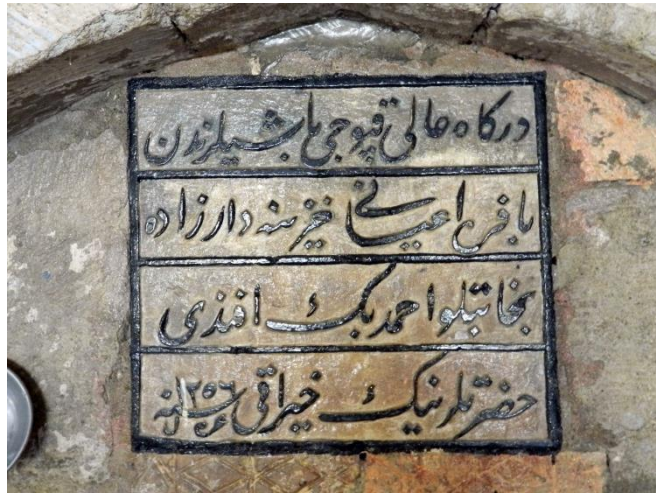 دركاه عالی قپوجی باشیلرندن
بافرا اعیانی خزینه دار زاده
نجابتلو احمد بك افندی
حضرتلرینك خیراتی سنه ١٢٥٦